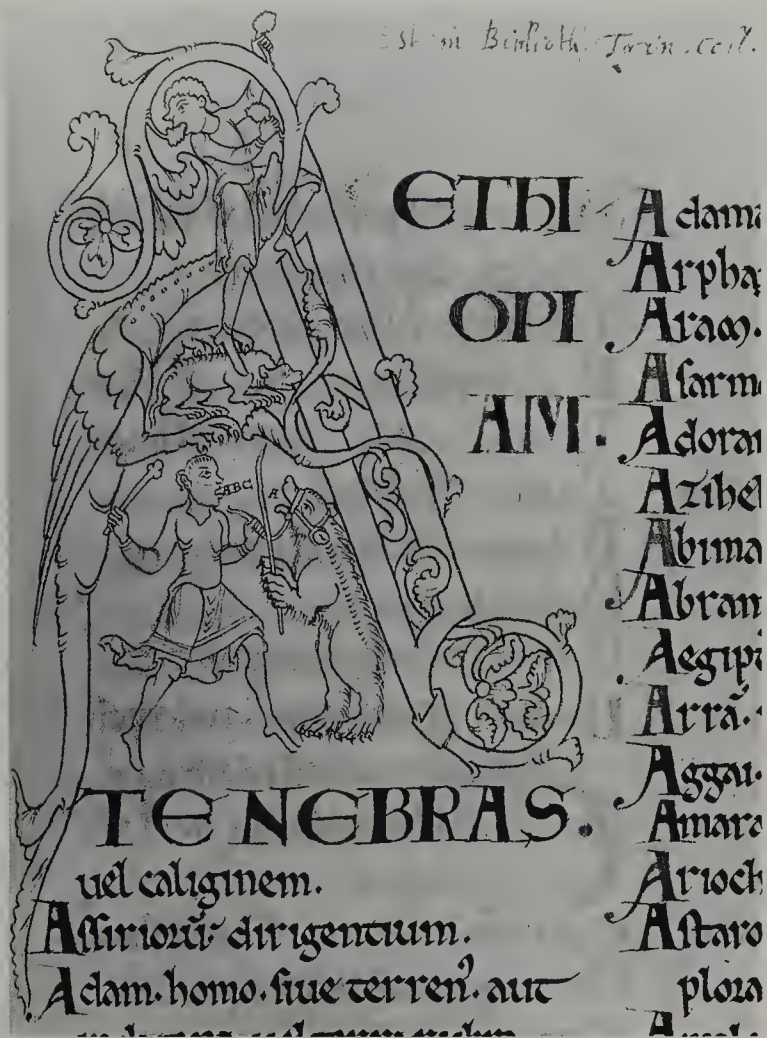 in Biblioth.
ETHI
OPI
AM.
ABC A
TENEBRAS.
uel caliginem.
Aſſiriorũ dirigentium.
Adam. homo. ſiue terrenꝰ. aut
Adama
Arpha
Aram.
Aſarm
Adora
Azibe
Abima
Abram
Aegipt
Arrã.
Aggai.
Amara
Arioch
Aſtaro
plora